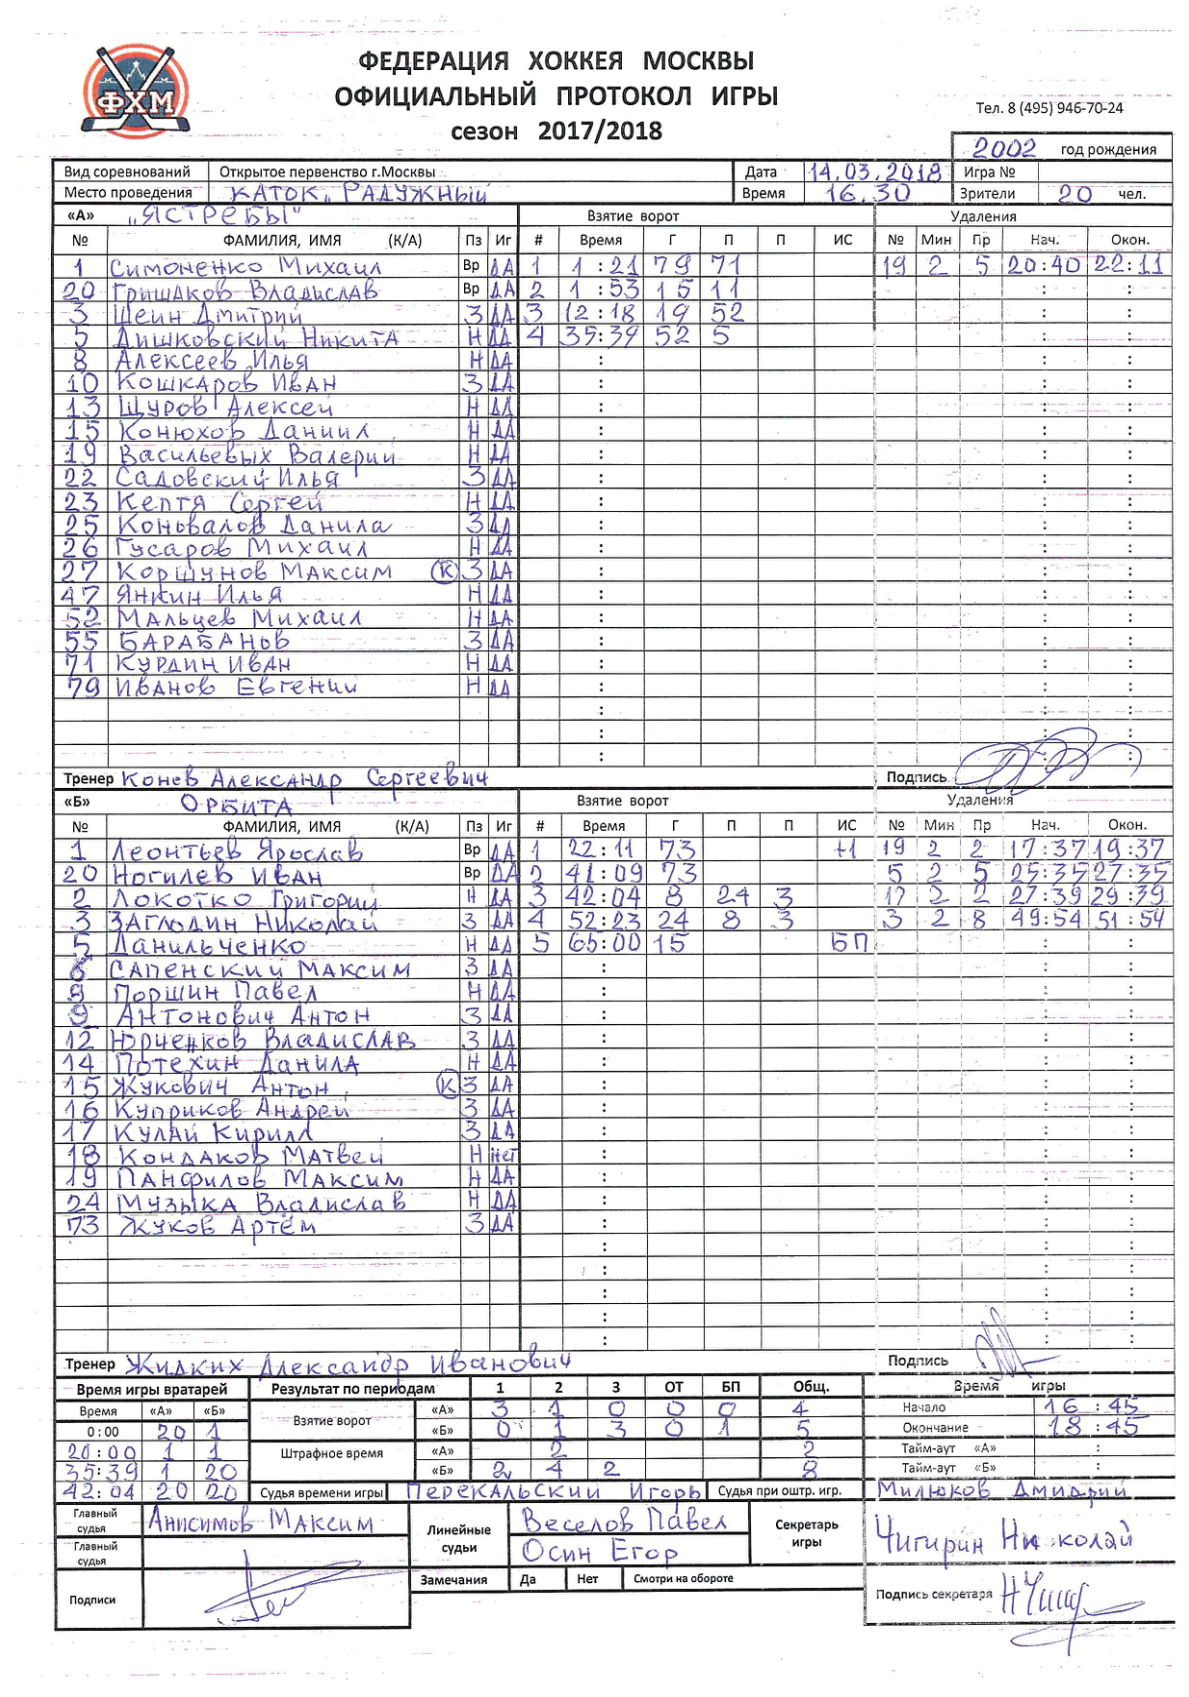 ФЕДЕРАЦИЯ ХОККЕЯ МОСКВЫ
ОФИЦИАЛЬНЫЙ ПРОТОКОЛ ИГРЫ
сезон 2017/2018
ФХМ
Тел. 8 (495) 946-70-24
2002 год рождения
Вид соревнований Открытое первенство г.Москвы Дата 14.03.2018 Игра №
Место проведения КАТОК „РАДУЖНЫЙ Время 16.30 Зрители 20 чел.
«А» „ЯСТРЕБЫ" Взятие ворот Удаления
№ ФАМИЛИЯ, ИМЯ (К/А) Пз Иг # Время Г П П ИС № Мин Пр Нач. Окон.
1 Симоненко Михаил Вр ДА 1 1:21 79 71 19 2 5 20:40 22:11
20 Гришаков Владислав Вр ДА 2 1:53 15 11 : :
3 Шеин Дмитрий З ДА 3 12:18 19 52 : :
5 Дишковский Никита Н ДА 4 35:39 52 5 : :
8 Алексеев Илья Н ДА : : :
10 Кошкаров Иван З ДА : : :
13 Щуров Алексей Н ДА : : :
15 Конюхов Даниил Н ДА : : :
19 Васильевых Валерий Н ДА : : :
22 Садовский Илья З ДА : : :
23 Кептя Сергей Н ДА : : :
25 Коновалов Данила З ДА : : :
26 Гусаров Михаил Н ДА : : :
27 Коршунов Максим К З ДА : : :
47 Янкин Илья Н ДА : : :
52 Мальцев Михаил Н ДА : : :
55 БАРАБАНОВ З ДА : : :
71 Курдин Иван Н ДА : : :
79 Иванов Евгений Н ДА : : :
: : :
: : :
: : :
Тренер Конев Александр Сергеевич Подпись
«Б» ОРБИТА Взятие ворот Удаления
№ ФАМИЛИЯ, ИМЯ (К/А) Пз Иг # Время Г П П ИС № Мин Пр Нач. Окон.
1 Леонтьев Ярослав Вр ДА 1 22:11 73 +1 19 2 2 17:37 19:37
20 Ногилев Иван Вр ДА 2 41:09 73 5 2 5 25:35 27:35
2 Локотко Григорий Н ДА 3 42:04 8 24 3 17 2 2 27:39 29:39
3 Заглодин Николай З ДА 4 52:23 24 8 3 3 2 8 49:54 51:54
5 Данильченко Н ДА 5 65:00 15 БП : :
6 Сапенский Максим З ДА : : :
8 Поршин Павел Н ДА : : :
9 Антонович Антон З ДА : : :
12 Юрченков Владислав З ДА : : :
14 Потехин Данила Н ДА : : :
15 Жукович Антон К З ДА : : :
16 Куприков Андрей З ДА : : :
17 Кулай Кирилл З ДА : : :
18 Кондаков Матвей Н Нет : : :
19 Панфилов Максим Н ДА : : :
24 Музыка Владислав Н ДА : : :
73 Жуков Артём З ДА : : :
: : :
: : :
: : :
: : :
: : :
Тренер Жидких Александр Иванович Подпись
Время игры вратарей Результат по периодам 1 2 3 ОТ БП Общ. Время игры
Время «А» «Б» Взятие ворот «А» 3 1 0 0 0 4 Начало 16:45
0:00 20 1 «Б» 0 1 3 0 1 5 Окончание 18:45
20:00 1 1 Штрафное время «А» 2 2 Тайм-аут «А» :
35:39 1 20 «Б» 2 4 2 8 Тайм-аут «Б» :
42:04 20 20 Судья времени игры Перекальский Игорь Судья при оштр. игр. Милюков Дмитрий
Главный судья Анисимов Максим Линейные судьи Веселов Павел Секретарь игры Чигирин Николай
Главный судья Осин Егор
Замечания Да Нет Смотри на обороте
Подписи Подпись секретаря